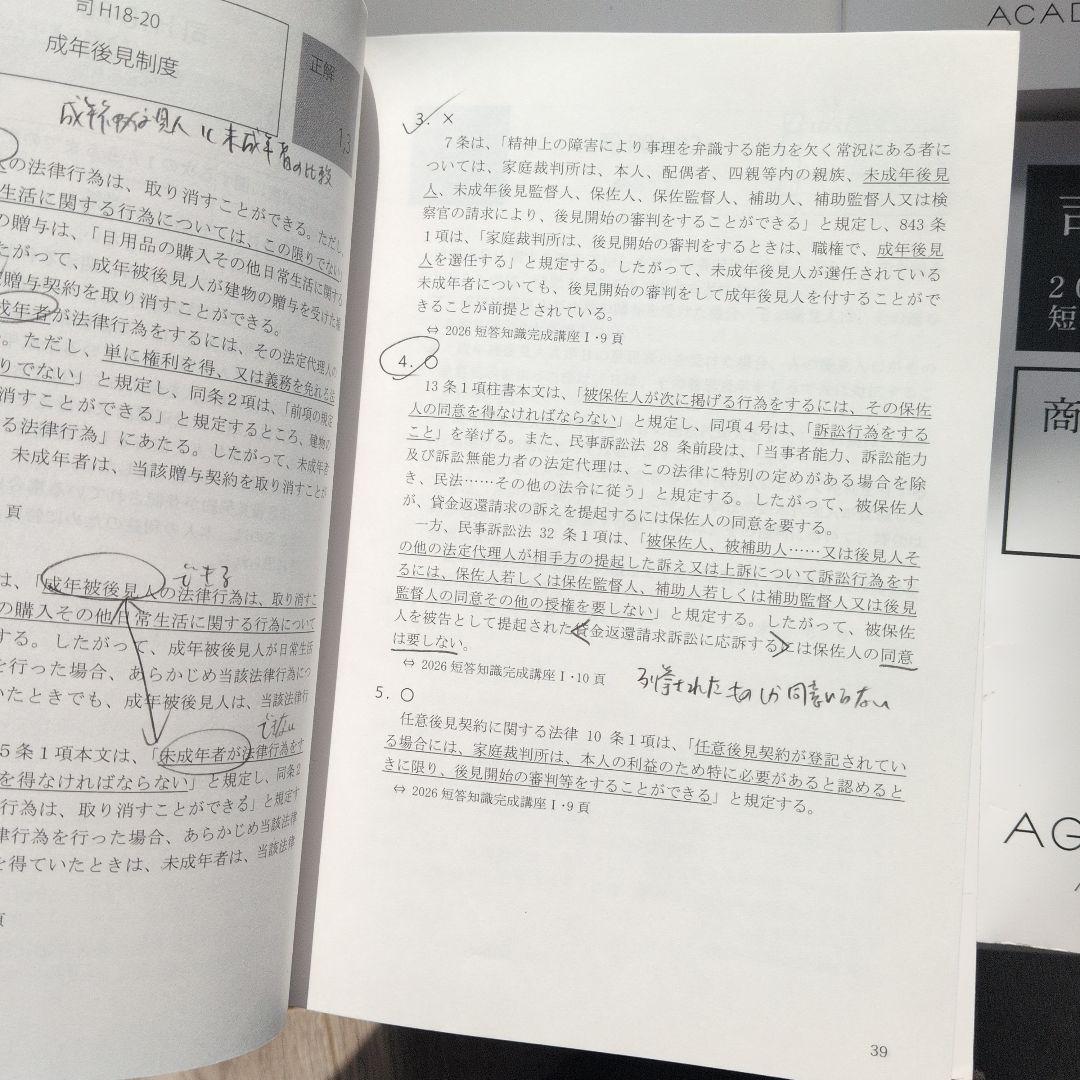 司 H18-20
成年後見制度
正解
1,3
成年被後見人と未成年者の比較
の法律行為は、取り消すことができる。ただし、
生活に関する行為については、この限りでない
の贈与は、「日用品の購入その他日常生活に関する
たがって、成年被後見人が建物の贈与を受けた
贈与契約を取り消すことができる。
成年者が法律行為をするには、その法定代理人の
。ただし、単に権利を得、又は義務を免れる法
りでない」と規定し、同条2項は、「前項の規定
消すことができる」と規定するところ、建物の
る法律行為」にあたる。したがって、未成年者
未成年者は、当該贈与契約を取り消すことが
頁
できる
は、「成年被後見人の法律行為は、取り消すこ
の購入その他日常生活に関する行為について
する。したがって、成年被後見人が日常生活
を行った場合、あらかじめ当該法律行為につ
いたときでも、成年被後見人は、当該法律行
できない
5条1項本文は、「未成年者が法律行為をす
を得なければならない」と規定し、同条2
行為は、取り消すことができる」と規定す
律行為を行った場合、あらかじめ当該法律
を得ていたときは、未成年者は、当該法律
頁
3. ×
7条は、「精神上の障害により事理を弁識する能力を欠く常況にある者に
ついては、家庭裁判所は、本人、配偶者、四親等内の親族、未成年後見
人、未成年後見監督人、保佐人、保佐監督人、補助人、補助監督人又は検
察官の請求により、後見開始の審判をすることができる」と規定し、843 条
1項は、「家庭裁判所は、後見開始の審判をするときは、職権で、成年後見
人を選任する」と規定する。したがって、未成年後見人が選任されている
未成年者についても、後見開始の審判をして成年後見人を付することがで
きることが前提とされている。
⇔ 2026 短答知識完成講座Ⅰ・9 頁
4. ○
13 条1項柱書本文は、「被保佐人が次に掲げる行為をするには、その保佐
人の同意を得なければならない」と規定し、同項4号は、「訴訟行為をする
こと」を挙げる。また、民事訴訟法 28 条前段は、「当事者能力、訴訟能力
及び訴訟無能力者の法定代理は、この法律に特別の定めがある場合を除
き、民法……その他の法令に従う」と規定する。したがって、被保佐人
が、貸金返還請求の訴えを提起するには保佐人の同意を要する。
一方、民事訴訟法 32 条1項は、「被保佐人、被補助人……又は後見人そ
の他の法定代理人が相手方の提起した訴え又は上訴について訴訟行為をす
るには、保佐人若しくは保佐監督人、補助人若しくは補助監督人又は後見
監督人の同意その他の授権を要しない」と規定する。したがって、被保佐
人を被告として提起された貸金返還請求訴訟に応訴するには保佐人の同意
は要しない。
⇔ 2026 短答知識完成講座Ⅰ・10 頁
5. ○
任意後見契約に関する法律 10 条1項は、「任意後見契約が登記されてい
る場合には、家庭裁判所は、本人の利益のため特に必要があると認めると
きに限り、後見開始の審判等をすることができる」と規定する。
⇔ 2026 短答知識完成講座Ⅰ・9 頁
39
ACAD
短
商
AG